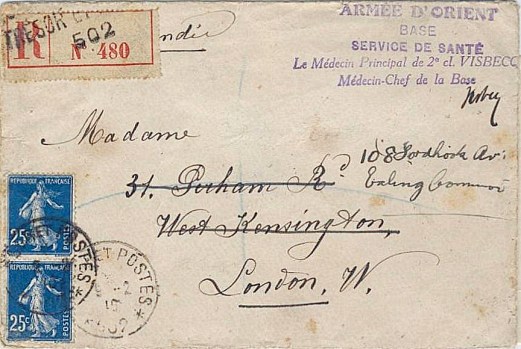 TRESOR ET
502
R
N. 480
ARMÉE D'ORIENT
BASE
SERVICE DE SANTÉ
Le Médecin Principal de 2e cl. VISBECQ
Médecin-Chef de la Base
Madame
31. Perham Rd
108 Av.
Ealing Common
West Kensington,
London, W.
RÉPUBLIQUE FRANÇAISE
25c POSTES
RÉPUBLIQUE FRANÇAISE
25c POSTES
ET POSTES
502